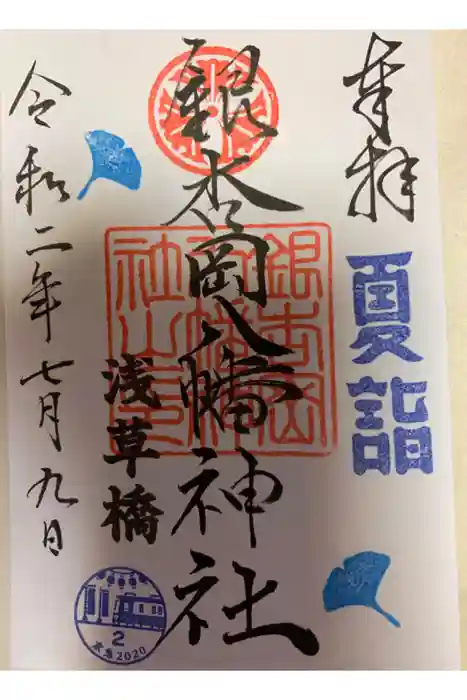 奉拝
夏詣
銀杏岡八幡神社
銀杏岡八幡神社之印
浅草橋
2
2020
令和二年七月九日